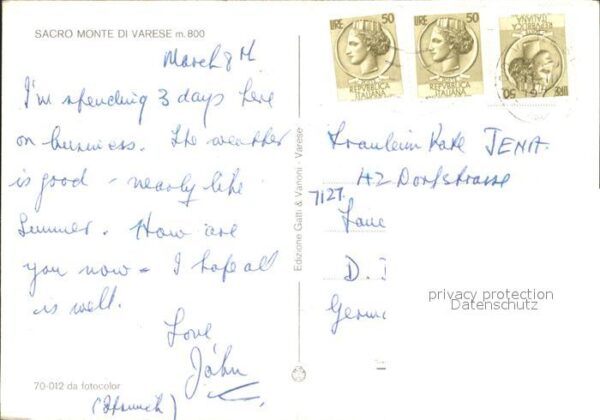 SACRO MONTE DI VARESE m. 800
March 8th
I'm spending 3 days here
on business. The weather
is good - nearly like
Summer. How are
you now - I hope all
is well.
Love,
John
70-012 da fotocolor
Edizione Gatti & Vanoni - Varese
LIRE 50
REPVBBLICA
ITALIANA
LIRE 50
REPVBBLICA
ITALIANA
LIRE 50
REPVBBLICA
ITALIANA
Fräulein Kate JENA.
42 Dorfstrasse
7127.
D.
Germ
privacy protection
Datenschutz